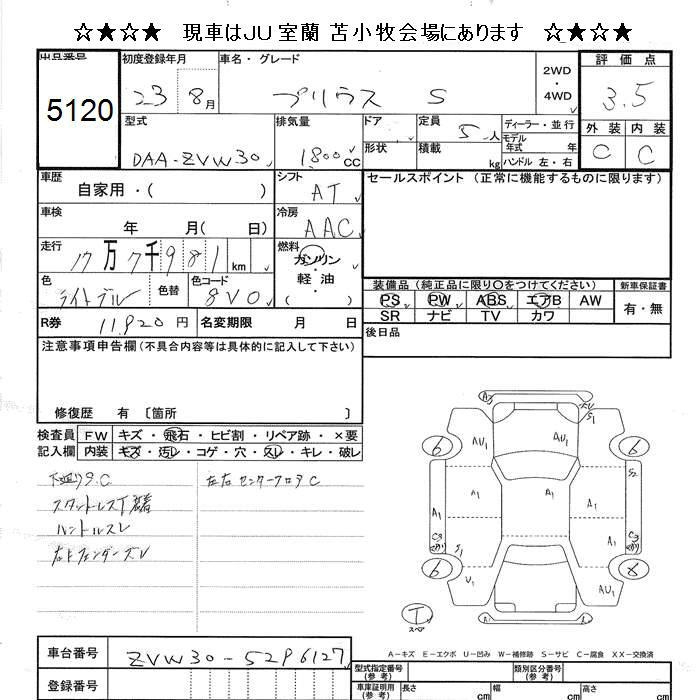 ☆★☆★ 現車はJU室蘭 苫小牧会場にあります ☆★☆★
出品番号
5120
初度登録年月
23 8月
車名・グレード
プリウス S
2WD
・
4WD
評価点
3.5
外装 内装
C C
型式
DAA-ZVW30
排気量
1800cc
ドア
形状
定員
5人
積載
kg
ディーラー・並行
モデル
年式 年
ハンドル 左・右
車歴
自家用・( )
シフト
AT
セールスポイント (正常に機能するものに限ります)
車検
年 月( 日)
冷房
AAC
走行
17万7千981km
燃料
ガソリン
軽油
( )
色
ライトブルー
色替
色コード
8V0
装備品 (純正品に限り〇をつけてください)
PS PW ABS エアB AW
SR ナビ TV カワ
新車保証書
有・無
R券 11,920円
名変期限 月 日
後日品
注意事項申告欄(不具合内容等は具体的に記入して下さい)
修復歴 有 〔箇所 〕
検査員
記入欄
FW キズ・飛石・ヒビ割・リペア跡・×要
内装 キズ・汚レ・コゲ・穴・スレ・キレ・破レ
下廻りS.C
左右センターフロアC
ハンドルスレ
A1
AU1
S1
6
6
A1
A1
A1
A1
S2
A1
C3
C3
S1
6
U1
AU1
T
スペア
A
A-キズ E-エクボ U-凹み W-補修跡 S-サビ C-腐食 XX-交換済
車台番号
ZVW30-5296127
登録番号
型式指定番号
(参考)
類別区分番号
(参考)
車庫証明用
(参考)
長さ
cm
幅
cm
高さ
cm